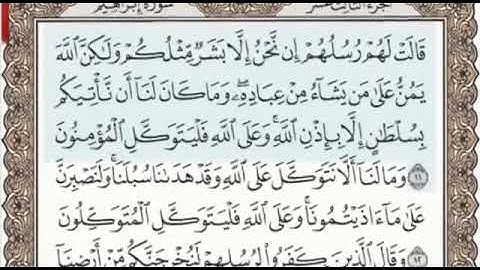 سورة إبراهيم
الجزء الثالث عشر
قَالَتْ لَهُمْ رُسُلُهُمْ إِن نَّحْنُ إِلَّا بَشَرٌ مِّثْلُكُمْ وَلَٰكِنَّ ٱللَّهَ
يَمُنُّ عَلَىٰ مَن يَشَآءُ مِنْ عِبَادِهِۦ ۖ وَمَا كَانَ لَنَآ أَن نَّأْتِيَكُم
بِسُلْطَٰنٍ إِلَّا بِإِذْنِ ٱللَّهِ ۚ وَعَلَى ٱللَّهِ فَلْيَتَوَكَّلِ ٱلْمُؤْمِنُونَ
١١ وَمَا لَنَآ أَلَّا نَتَوَكَّلَ عَلَى ٱللَّهِ وَقَدْ هَدَىٰنَا سُبُلَنَا ۚ وَلَنَصْبِرَنَّ
عَلَىٰ مَآ ءَاذَيْتُمُونَا ۚ وَعَلَى ٱللَّهِ فَلْيَتَوَكَّلِ ٱلْمُتَوَكِّلُونَ
١٢ وَقَالَ ٱلَّذِينَ كَفَرُوا۟ لِرُسُلِهِمْ لَنُخْرِجَنَّكُم مِّنْ أَرْضِنَآ